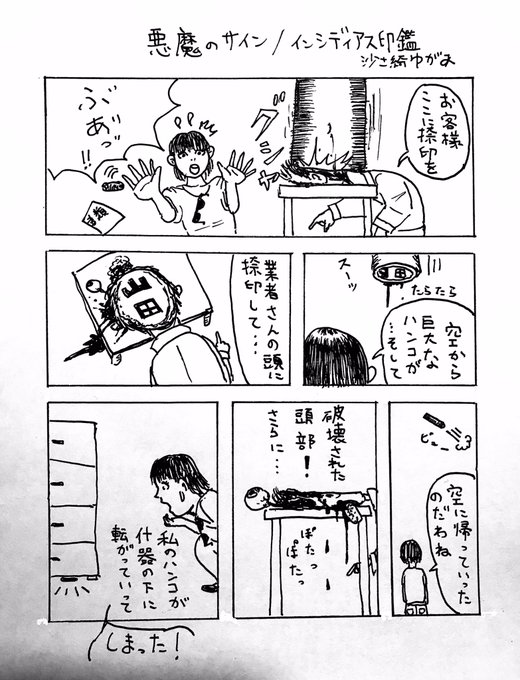 悪魔のサイン/インシディアス印鑑
沙さ綺ゆがみ
お客様
ここに捺印を
グシャ
ぶあっ!!
空から
巨大な
ハンコが
…そして
たらたら
スーッ
業者さんの頭に
捺印して…
山田
空に帰っていった
のだわね
ビュー
破壊された
頭部!
さらに…
ぽたっ
ぽたっ
私のハンコが
什器の下に
転がっていって
しまった!